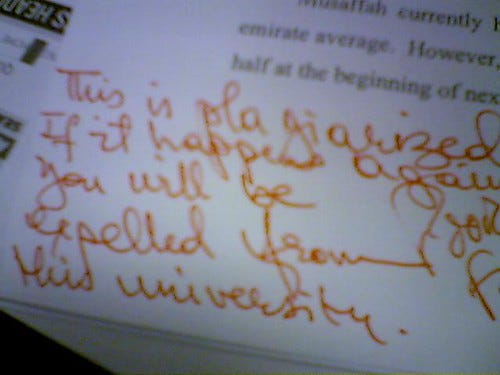 S HEADI
Musaffah currently
emirate average. However,
half at the beginning of nex
This is plagiarized
If it happens again
you will be
expelled from
this university.